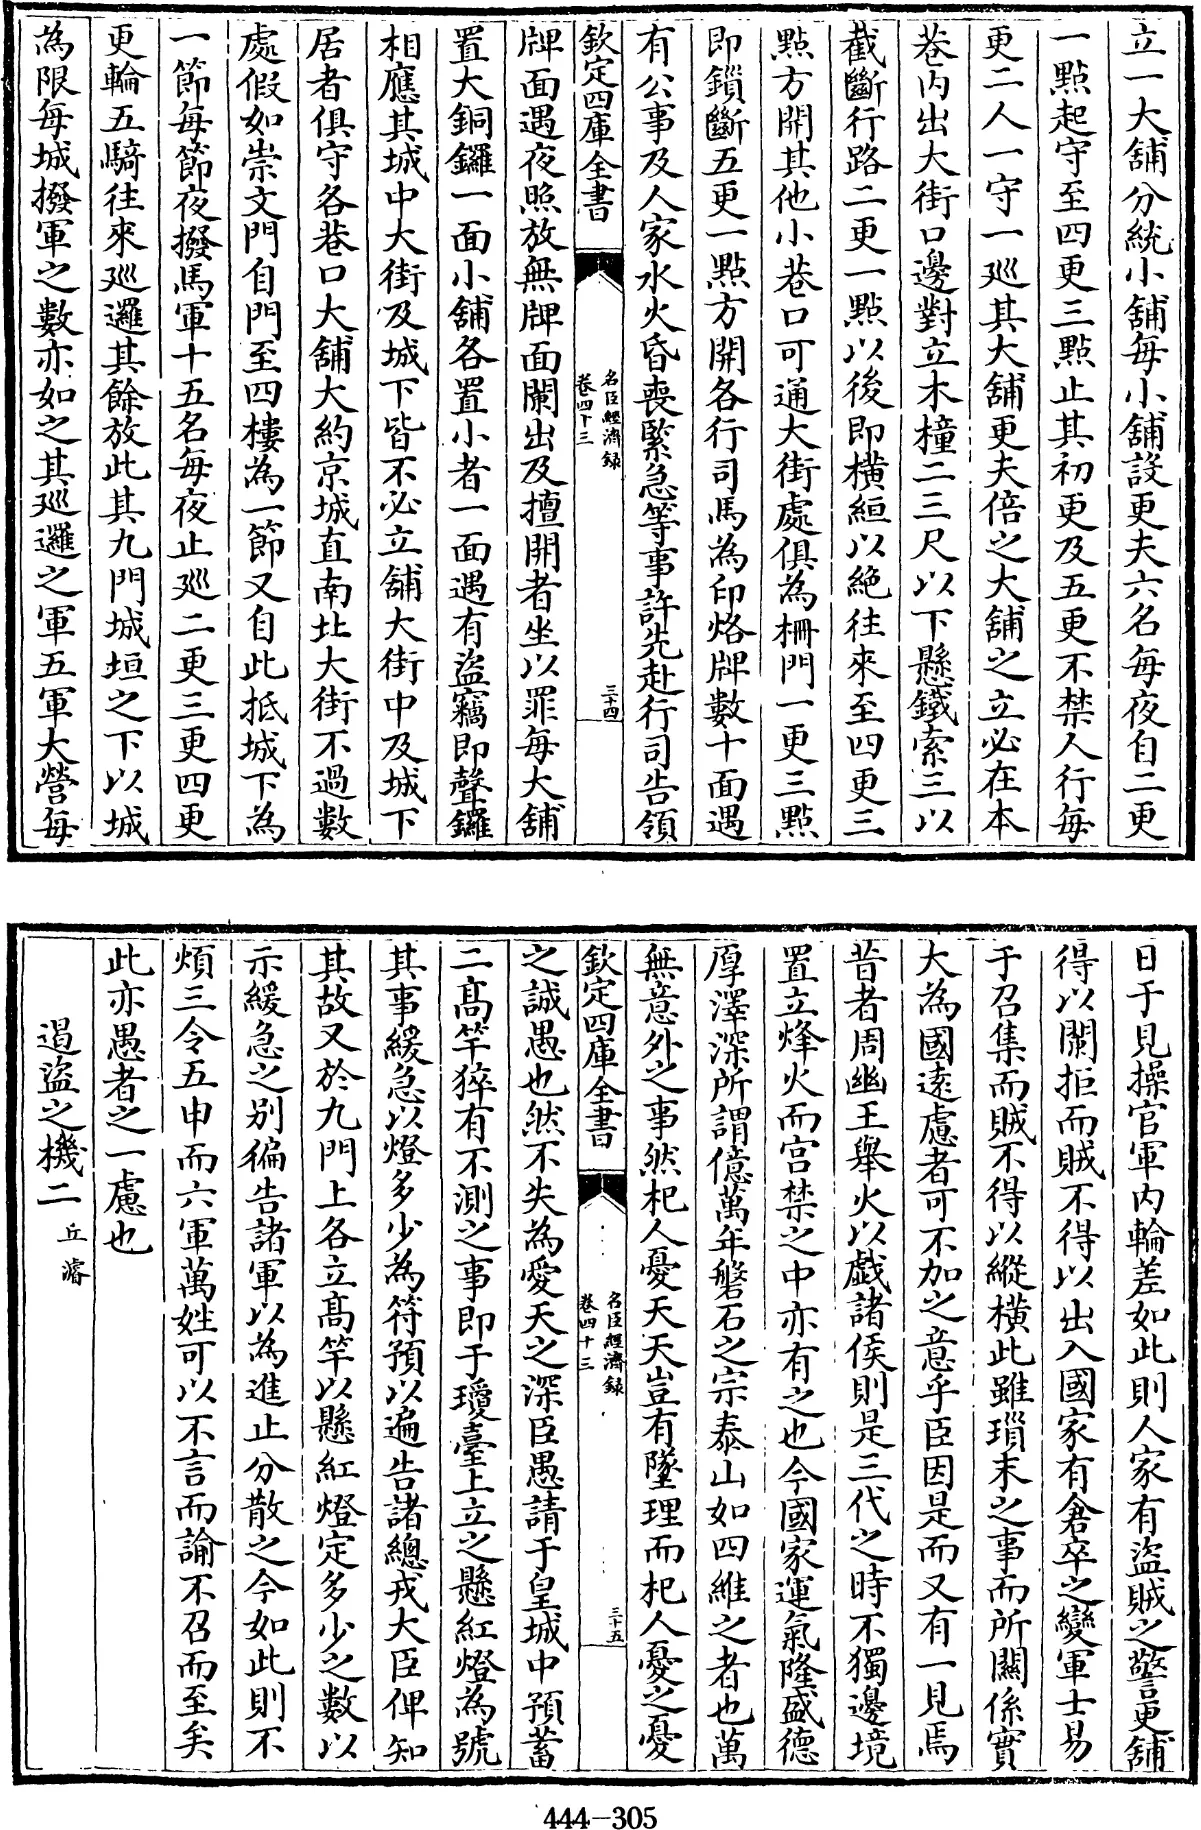 立一大舖分統小舖每小舖設更夫六名每夜自二更
一點起守至四更三點止其初更及五更不禁人行每
更二人一守一巡其大舖更夫倍之大舖之立必在本
巷内出大街口邊對立木橦二三尺以下懸鐵索三以
截斷行路二更一點以後即横絙以絶往來至四更三
點方開其他小巷口可通大街處俱為柵門一更三點
即鎖斷五更一點方開各行司馬為印烙牌數十面遇
有公事及人家水火昏喪緊急等事許先赴行司告領
欽定四庫全書
名臣經濟録
卷四十三
三十四
牌面遇夜照放無牌面闌出及擅開者坐以罪每大舖
置大銅鑼一面小舖各置小者一面遇有盜竊即聲鑼
相應其城中大街及城下皆不必立舖大街中及城下
居者俱守各巷口大舖大約京城直南北大街不過數
處假如崇文門自門至四樓為一節又自此抵城下為
一節每節夜撥馬軍十五名每夜止巡二更三更四更
更輪五騎往來巡邏其餘放此其九門城垣之下以城
為限每城撥軍之數亦如之其巡邏之軍五軍大營每
日于見操官軍内輪差如此則人家有盜賊之警更舖
得以闌拒而賊不得以出入國家有倉卒之變軍士易
于召集而賊不得以縱横此雖瑣末之事而所關係實
大為國遠慮者可不加之意乎臣因是而又有一見焉
昔者周幽王舉火以戲諸侯則是三代之時不獨邊境
置立烽火而宫禁之中亦有之也今國家運氣隆盛德
厚澤深所謂億萬年磐石之宗泰山如四維之者也萬
無意外之事然杞人憂天天豈有墜理而杞人憂之憂
欽定四庫全書
名臣經濟録
卷四十三
三十五
之誠愚也然不失為愛天之深臣愚請于皇城中預蓄
二髙竿猝有不測之事即于瓊臺上立之懸紅燈為號
其事緩急以燈多少為符預以遍告諸總戎大臣俾知
其故又於九門上各立髙竿以懸紅燈定多少之數以
示緩急之别徧告諸軍以為進止分散之令如此則不
煩三令五申而六軍萬姓可以不言而諭不召而至矣
此亦愚者之一慮也
遏盜之機二 丘濬
444-305